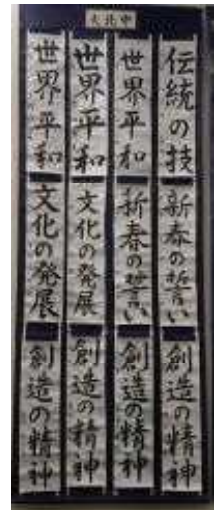 大北中
伝統の技
世界平和
世界平和
世界平和
新春の誓い
新春の誓い
文化の発展
文化の発展
創造の精神
創造の精神
創造の精神
創造の精神